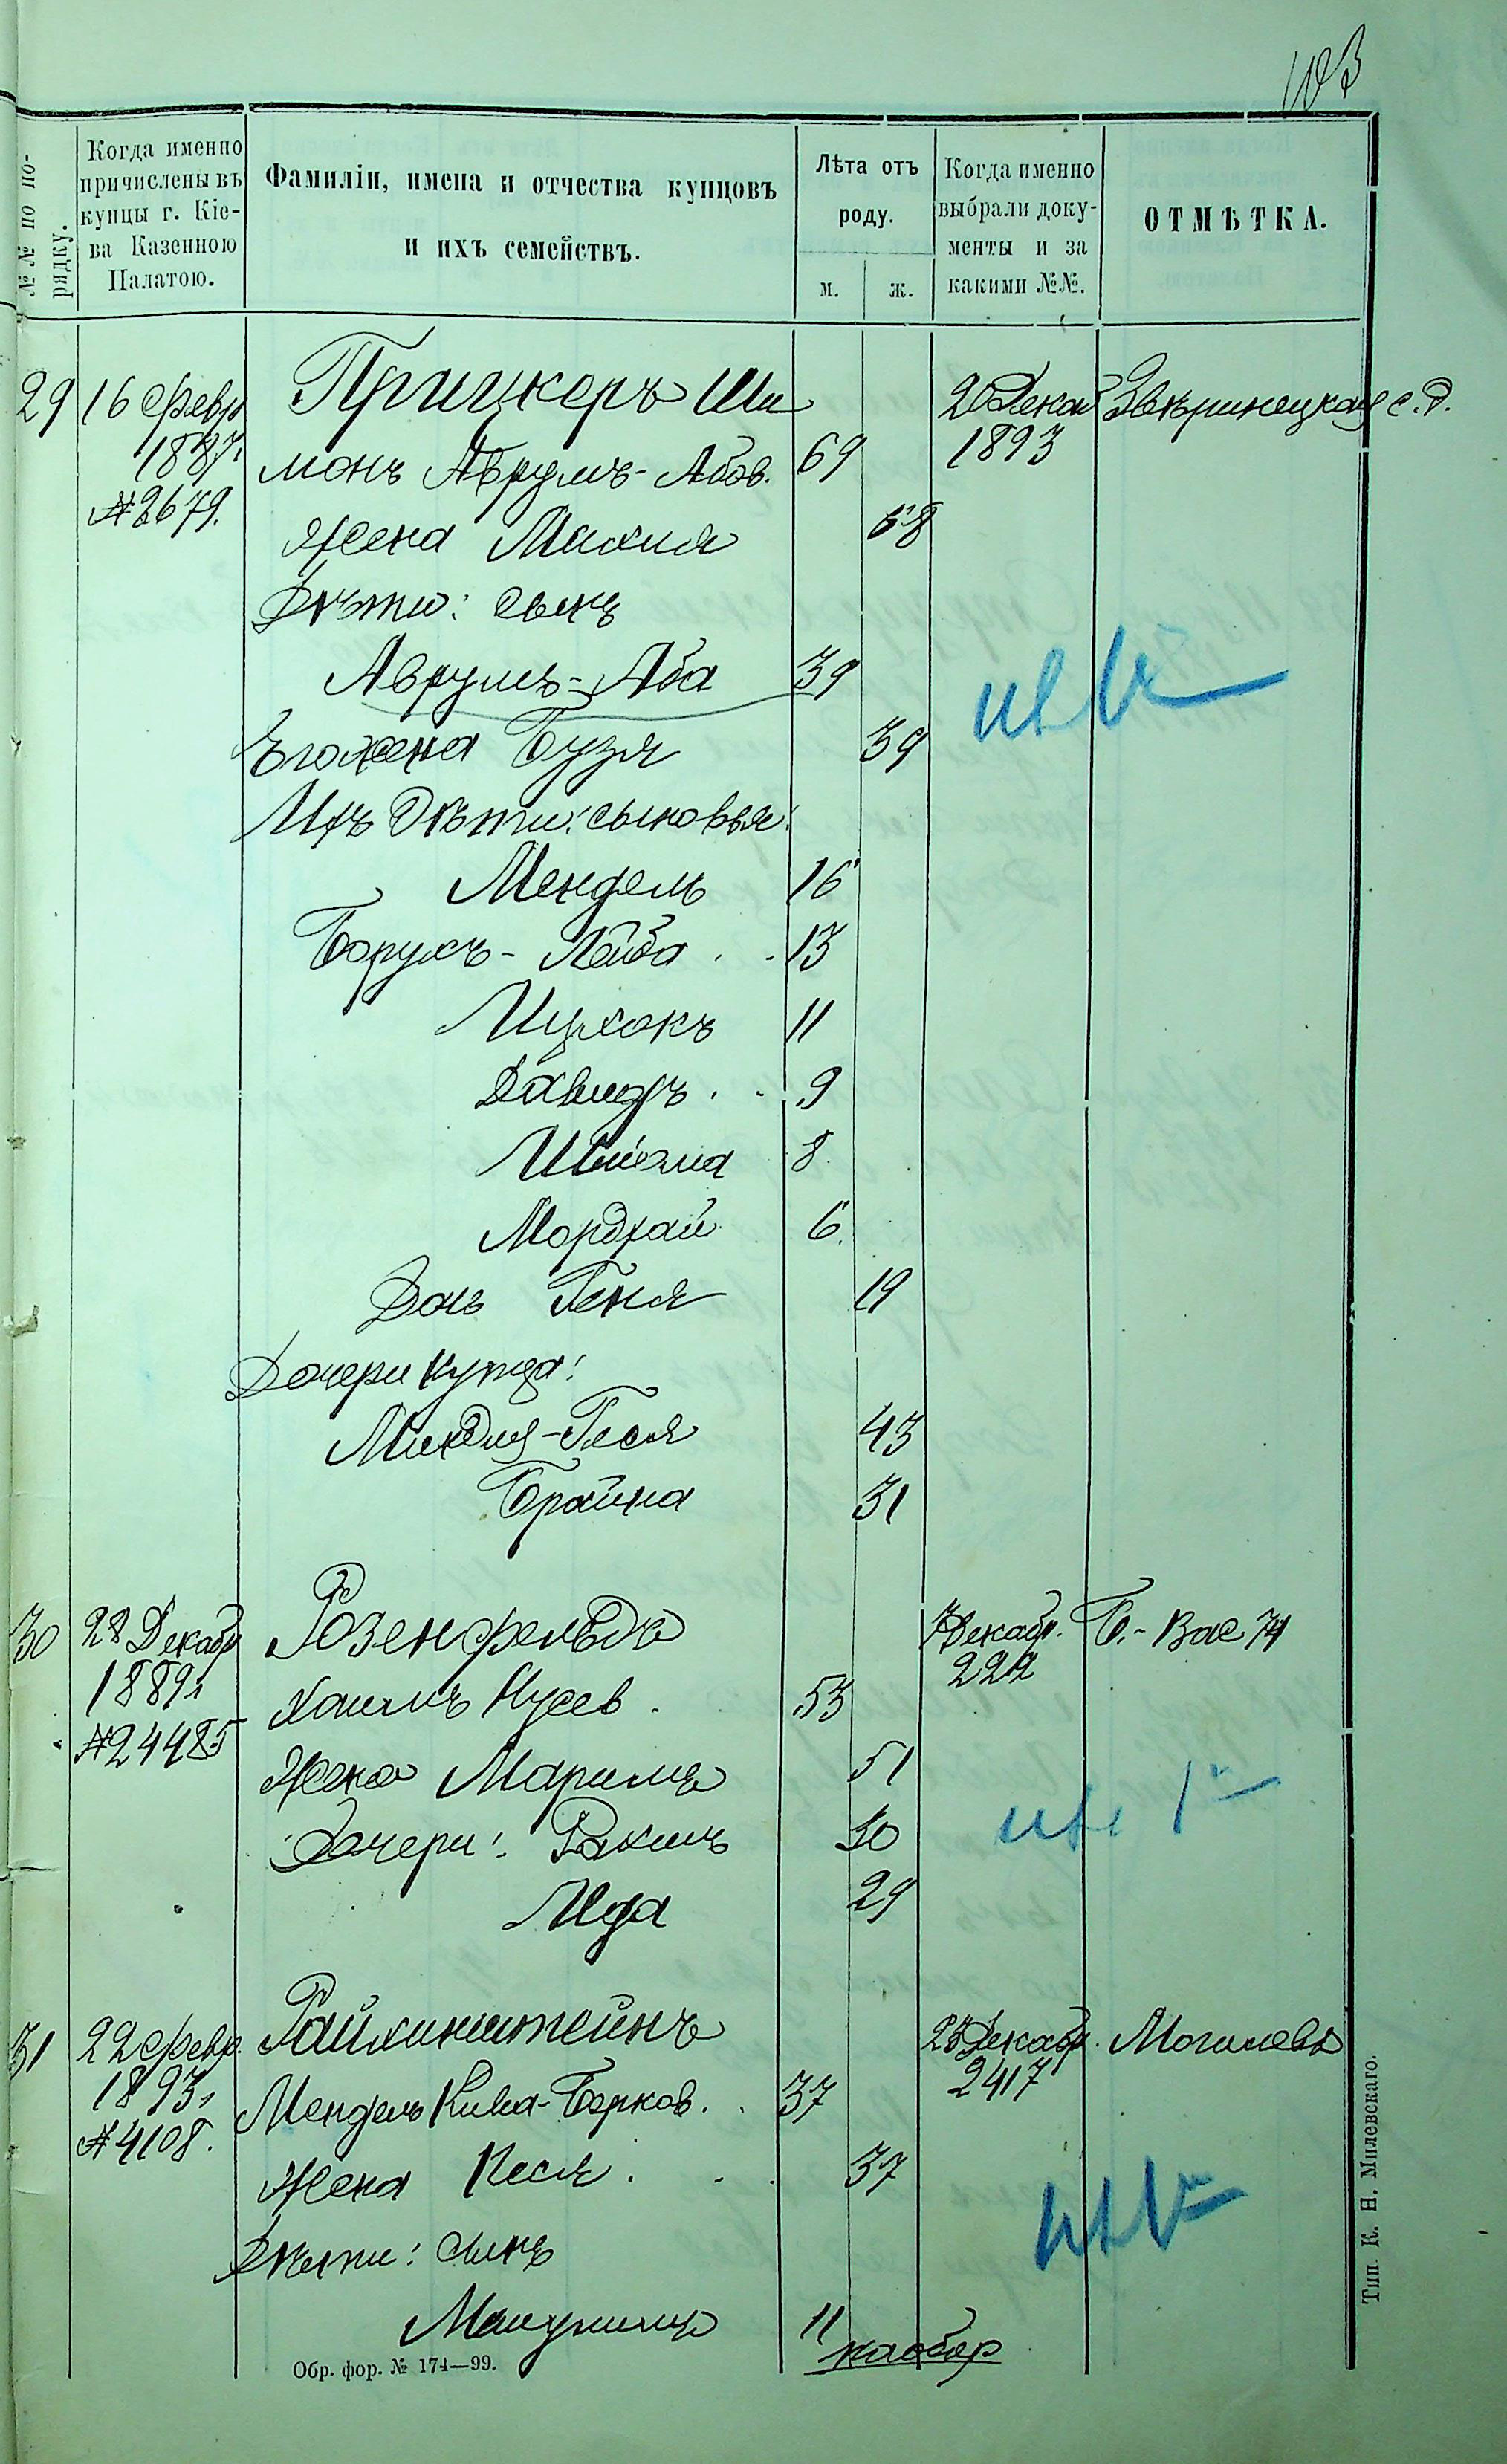 103
№№ по по-
рядку.
Когда именно
причислены въ
купцы г. Кіе-
ва Казенною
Палатою.
Фамиліи, имена и отчества купцовъ
и ихъ семействъ.
Лѣта отъ
роду.
м.
ж.
Когда именно
выбрали доку-
менты и за
какими №№.
ОТМѢТКА.
29 16 Февр Прицкеръ Ши 20 Декаб Звѣринецкая с. д.
1887 монъ Аврумъ-Абов. 69 1893
№2679. Жена Махля 68
Дѣти: сынъ
Аврумъ-Аба 39
Его жена Бузя 39
Ихъ дѣти: сыновья:
Мендель 16
Борухъ-Лейба 13
Ицхокъ 11
Давидъ 9
8
Мордхай 6
Дочь Геня 19
Дочери купца:
Миндля-Гася 43
Брайна 31
30 28 Декабр Розенфельдъ Декабр. Б.-Вас 74
1889 г Хаимъ Нусев. 53 2212
№24485 Жена Маримъ 51
Дочери: Рахиль 30
Ида 29
31 22 Февр. Райхинштейнъ 28 Декабр. Могилевъ
1893 г Мендель Кива-Берков. 37 2417
№4108. Жена Песя 37
Дѣти: сынъ
11
Обр. фор. № 174—99.
Тип. К. Н. Милевскаго.